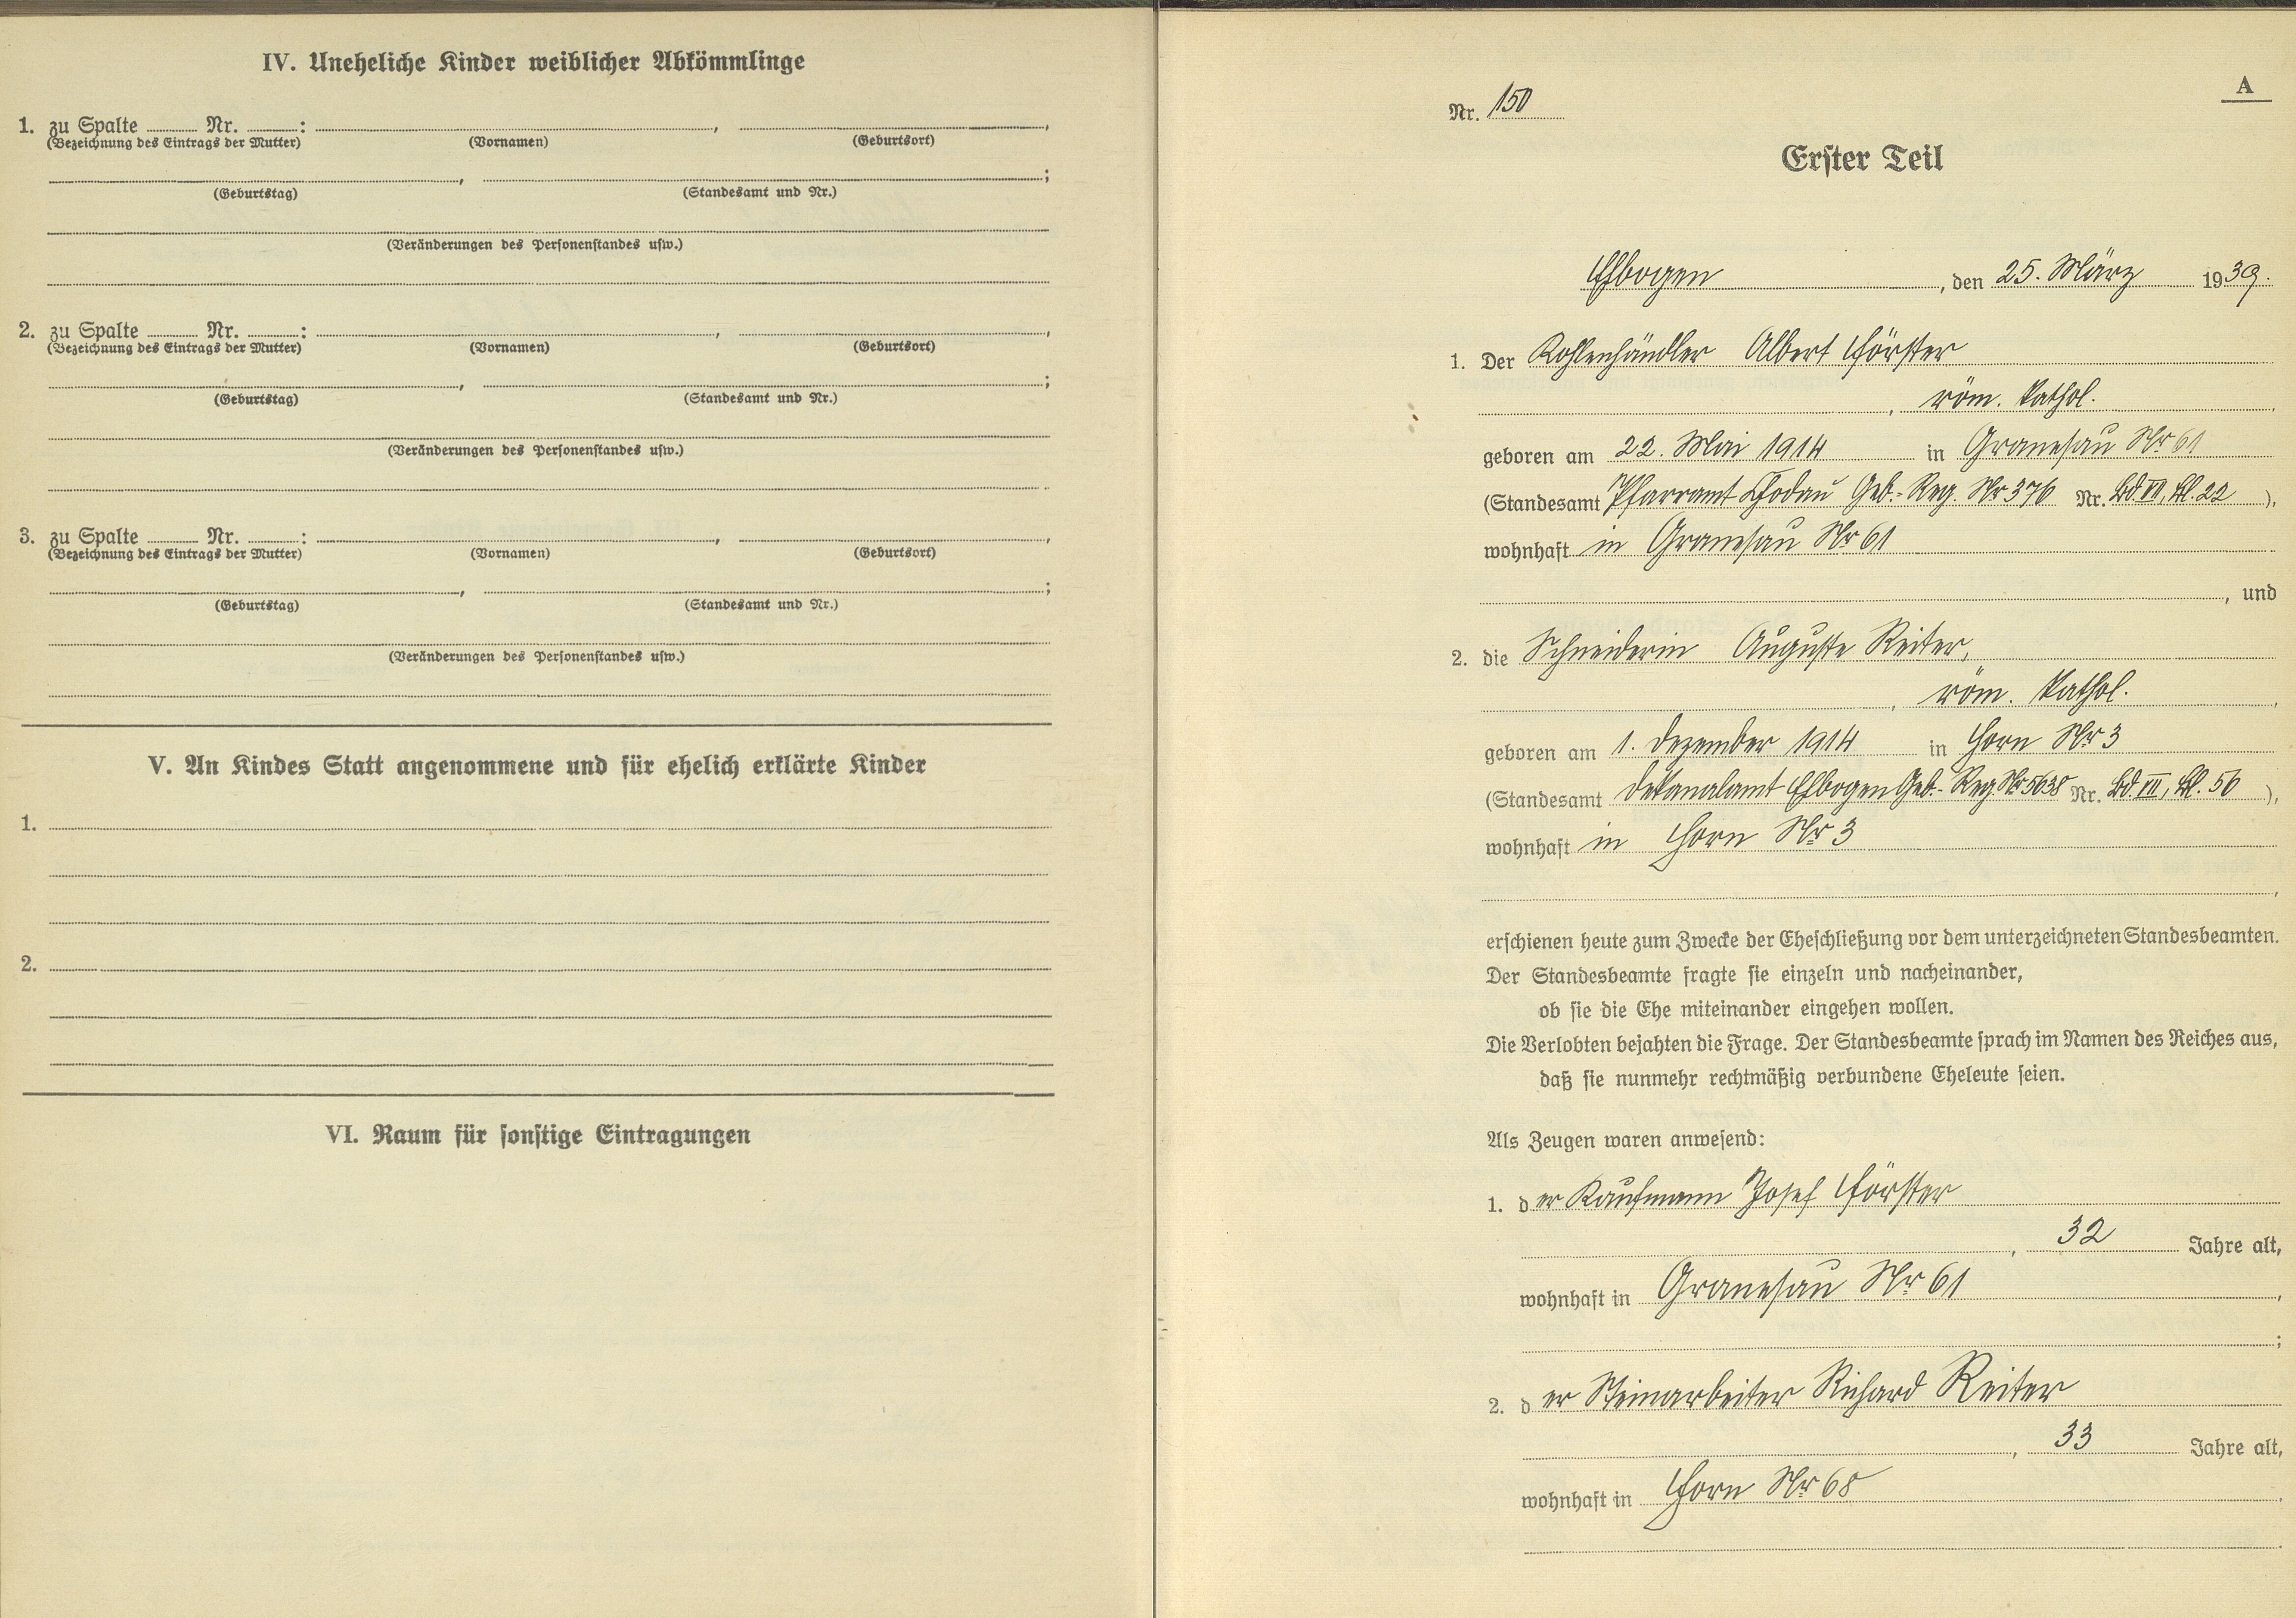 IV. Uneheliche Kinder weiblicher Abkömmlinge
1. zu Spalte Nr. : , ,
(Bezeichnung des Eintrags der Mutter) (Vornamen) (Geburtsort)
, ;
(Geburtstag) (Standesamt und Nr.)
(Veränderungen des Personenstandes usw.)
2. zu Spalte Nr. : , ,
(Bezeichnung des Eintrags der Mutter) (Vornamen) (Geburtsort)
, ;
(Geburtstag) (Standesamt und Nr.)
(Veränderungen des Personenstandes usw.)
3. zu Spalte Nr. : , ,
(Bezeichnung des Eintrags der Mutter) (Vornamen) (Geburtsort)
, ;
(Geburtstag) (Standesamt und Nr.)
(Veränderungen des Personenstandes usw.)
V. An Kindes Statt angenommene und für ehelich erklärte Kinder
1.
2.
VI. Raum für sonstige Eintragungen
A
Nr. 150
Erster Teil
Elbogen, den 25. März 1939.
1. Der Kohlenhändler Albert Förster
, röm. kathol.
geboren am 22. Mai 1914 in Granesau Nr 61
(Standesamt Pfarramt Chodau Geb.-Reg. Nr 376 Nr. Bd. VII, Bl. 22),
wohnhaft in Granesau Nr 61
, und
2. die Schneiderin Auguste Reiter,
, röm. kathol.
geboren am 1. Dezember 1914 in Horn Nr 3
(Standesamt Dekanalamt Elbogen Geb.-Reg. Nr 5638 Nr. Bd. III, Bl. 56),
wohnhaft in Horn Nr 3
,
erschienen heute zum Zwecke der Eheschließung vor dem unterzeichneten Standesbeamten.
Der Standesbeamte fragte sie einzeln und nacheinander,
ob sie die Ehe miteinander eingehen wollen.
Die Verlobten bejahten die Frage. Der Standesbeamte sprach im Namen des Reiches aus,
daß sie nunmehr rechtmäßig verbundene Eheleute seien.
Als Zeugen waren anwesend:
1. der Kaufmann Josef Förster
, 32 Jahre alt,
wohnhaft in Granesau Nr 61,
;
2. der Steinarbeiter Richard Reiter
, 33 Jahre alt,
wohnhaft in Horn Nr 68
.